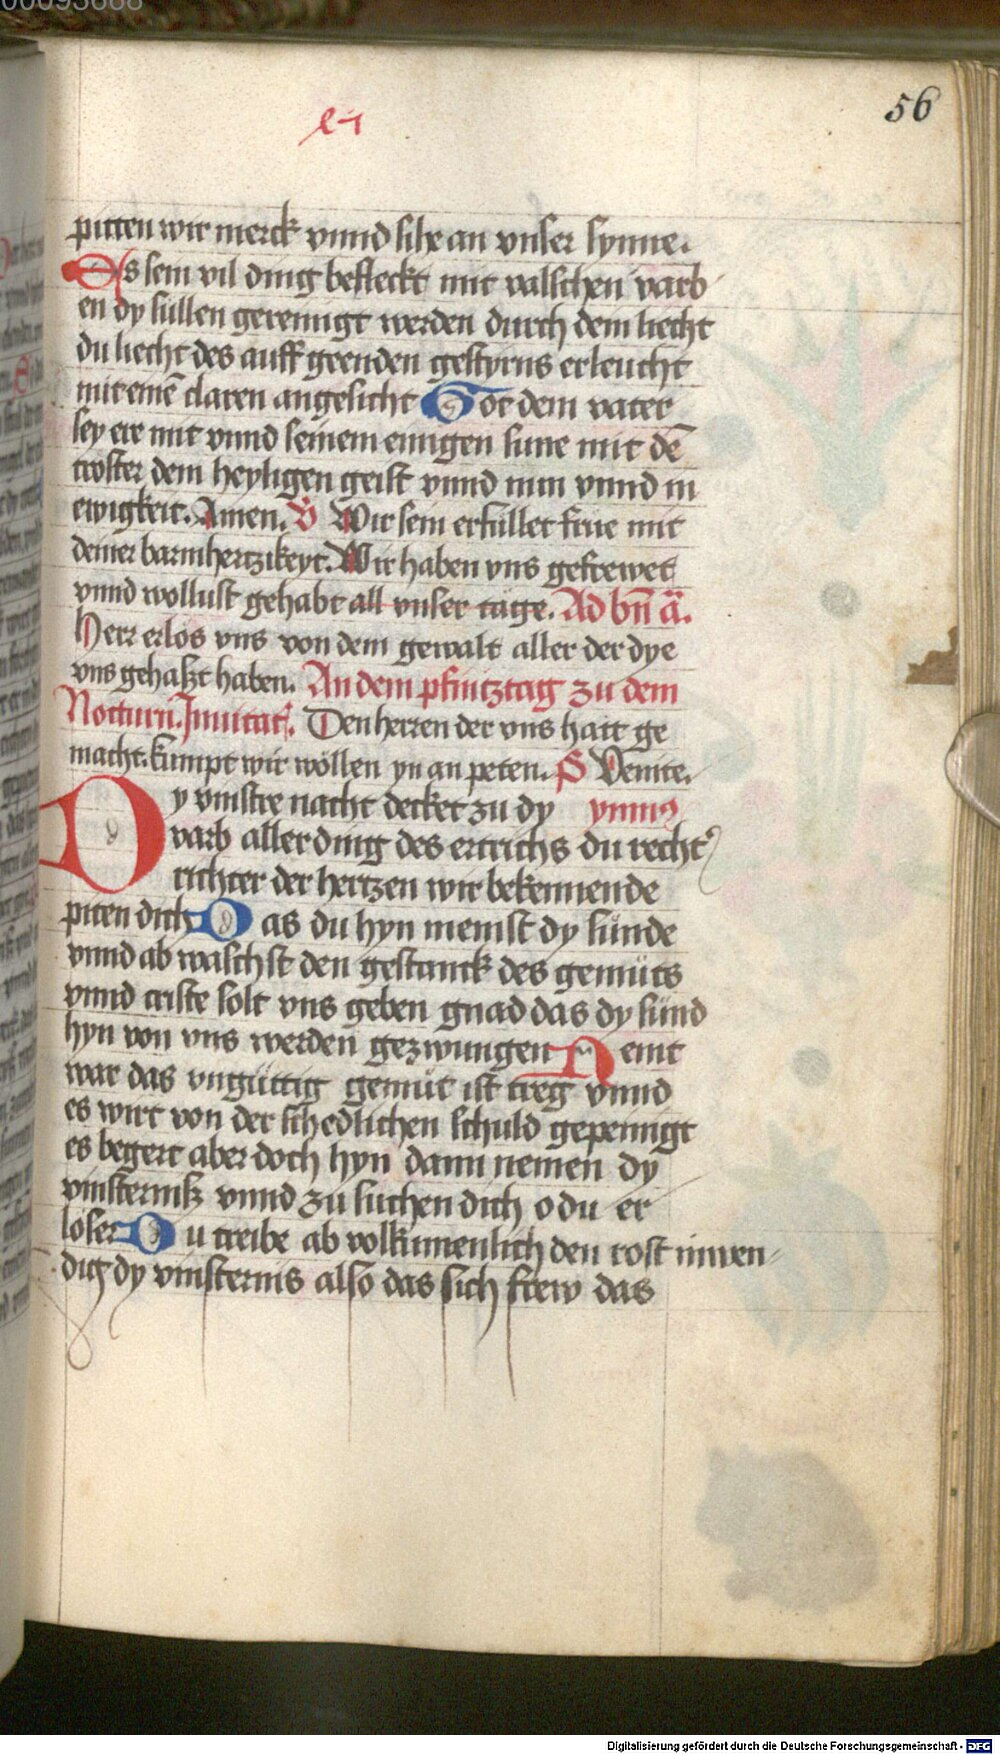 00093668
56
pitten wir merck vnnd sihe an vnser synne.
Es sein vil ding befleckt mit valschen varb
en dy sullen gereinigt werden durch dem liecht
du liecht des auff geenden gestyrns erleucht
mit eine͂ claren angesicht Got dem vater
sey ere mit vnnd seinem einigen sune mit de͂
troster dem heyligen geist vnnd nun vnnd in
ewigkeit. Amen. V̊ Wir sein erfullet frue mit
deiner barmhertzikeyt. Wir haben vns gefrewet
vnnd wollust gehabt all vnser tage. Ad bn̄ a͞.
Herr erlos vns von dem gewalt aller der dye
vns gehaszt haben. An dem pfintztag zu dem
Nocturn. Inuitat᷒. Den herren der vns hatt ge
macht. kumpt wir wöllen yn an peten. P̄s Venite.
Dy vinstre nacht decket zu dy ymnus
varb aller ding des ertrichs du recht᷒
richter der hertzen wir bekennende
piten dich Das du hyn nemst dy sünde
vnnd ab waschst den gestanck des gemüts
vnnd criste solt vns geben gnad das dy sünd
hyn von vns werden gezwungen Nemt
war das vngüttig gemüt ist treg vnnd
es wirt von der schedlichen schuld gepeinigt
es begert aber doch hyn dann nemen dy
vinsternisz vnnd zu suchen dich o du er
löser Du treibe ab volkumenlich den rost inwen-
dig dy vinsternis also das sich frew das
Digitalisierung gefördert durch die Deutsche Forschungsgemeinschaft - DFG